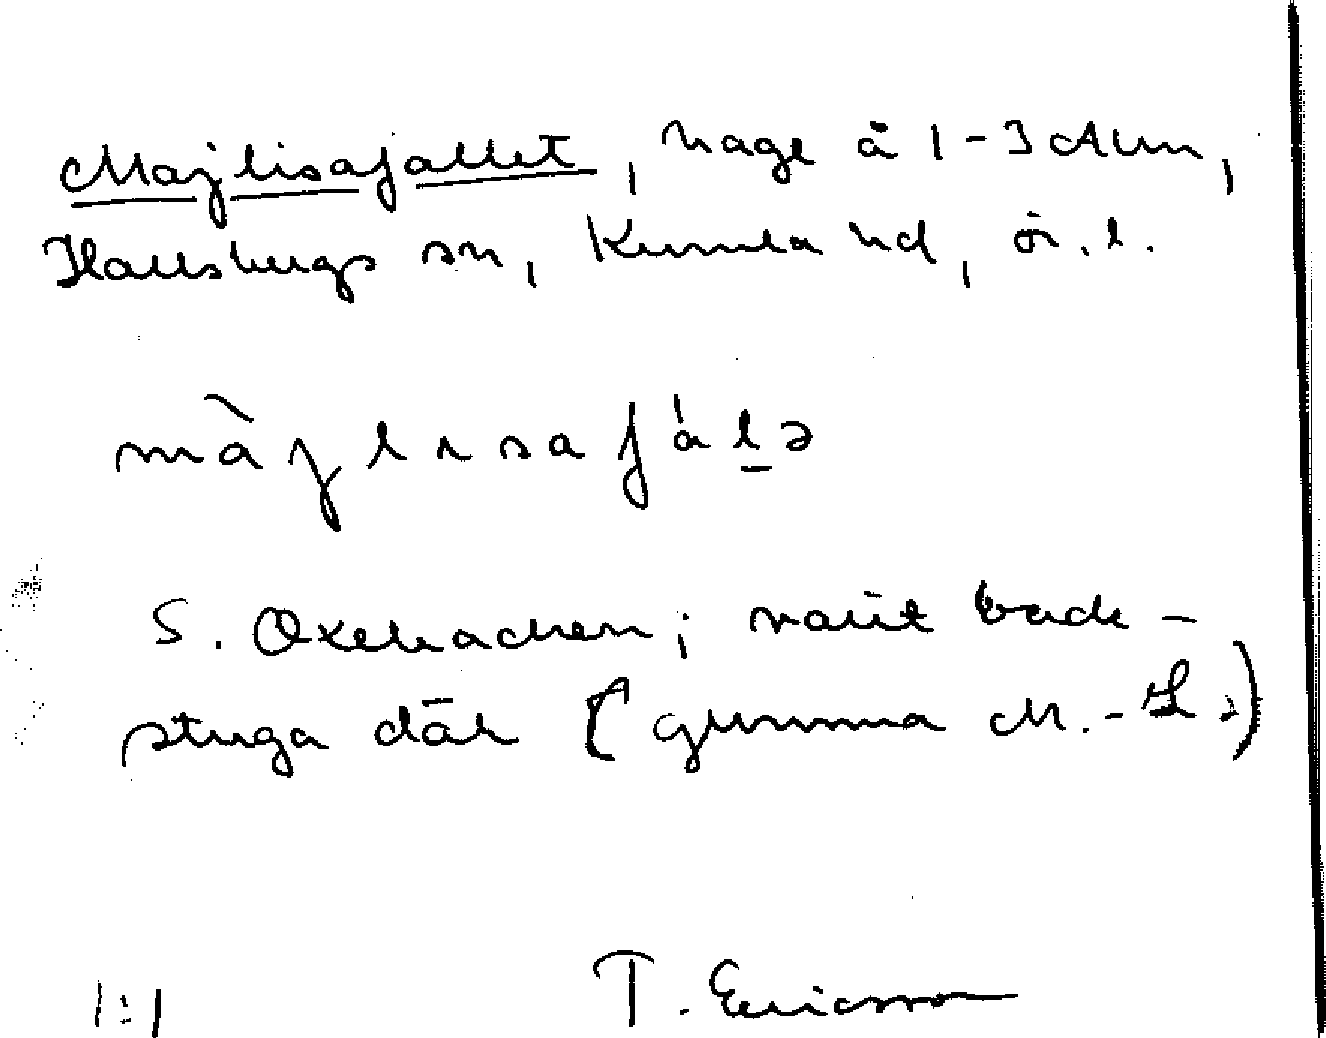 Majlisafallet, hage å 1-3 Alm,
Hallsbergs sn, Kumla hd, ör. l.
S. Oxebacken; varit back-
stuga där (gumma M.-L.)
1:1 T. Ericsson